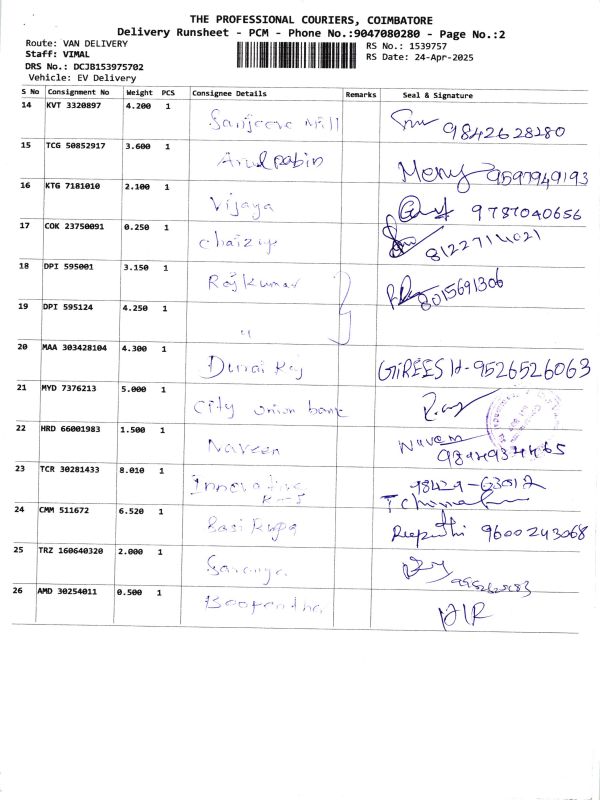 THE PROFESSIONAL COURIERS, COIMBATORE
Delivery Runsheet - PCM - Phone No.:9047080280 - Page No.:2
Route: VAN DELIVERY
Staff: VIMAL
DRS No.: DCJB153975702
Vehicle: EV Delivery
RS No.: 1539757
RS Date: 24-Apr-2025
S No Consignment No Weight PCS Consignee Details Remarks Seal & Signature
14 KVT 3320897 4.200 1 Sanjeeve Mill 9842628280
15 TCG 50852917 3.600 1 Arulpabin 9597949193
16 KTG 7181010 2.100 1 Vijaya 9787040656
17 COK 23750091 0.250 1
18 DPI 595001 3.150 1 Rajkumar 8015691306
19 DPI 595124 4.250 1 "
20 MAA 303428104 4.300 1 Durai Raj GIREESH-9526526063
21 MYD 7376213 5.000 1 City union bank
22 HRD 66001983 1.500 1 Naveen Naveen
23 TCR 30281433 8.010 1 Innovative
24 CMM 511672 6.520 1 Deepthi 9600243068
25 TRZ 160640320 2.000 1 Saranya
26 AMD 30254011 0.500 1